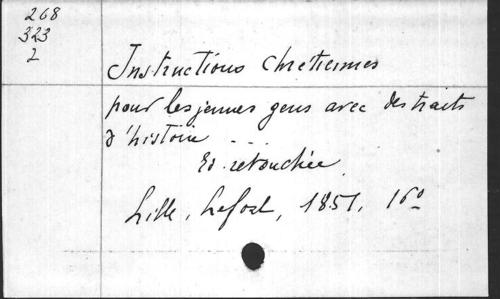 268
323
2
Instructions chretiennes
pour les jeunes gens avec des traits
d'histoire ...
Ed. retouchée.
Lille, Lefort, 1851, 16º